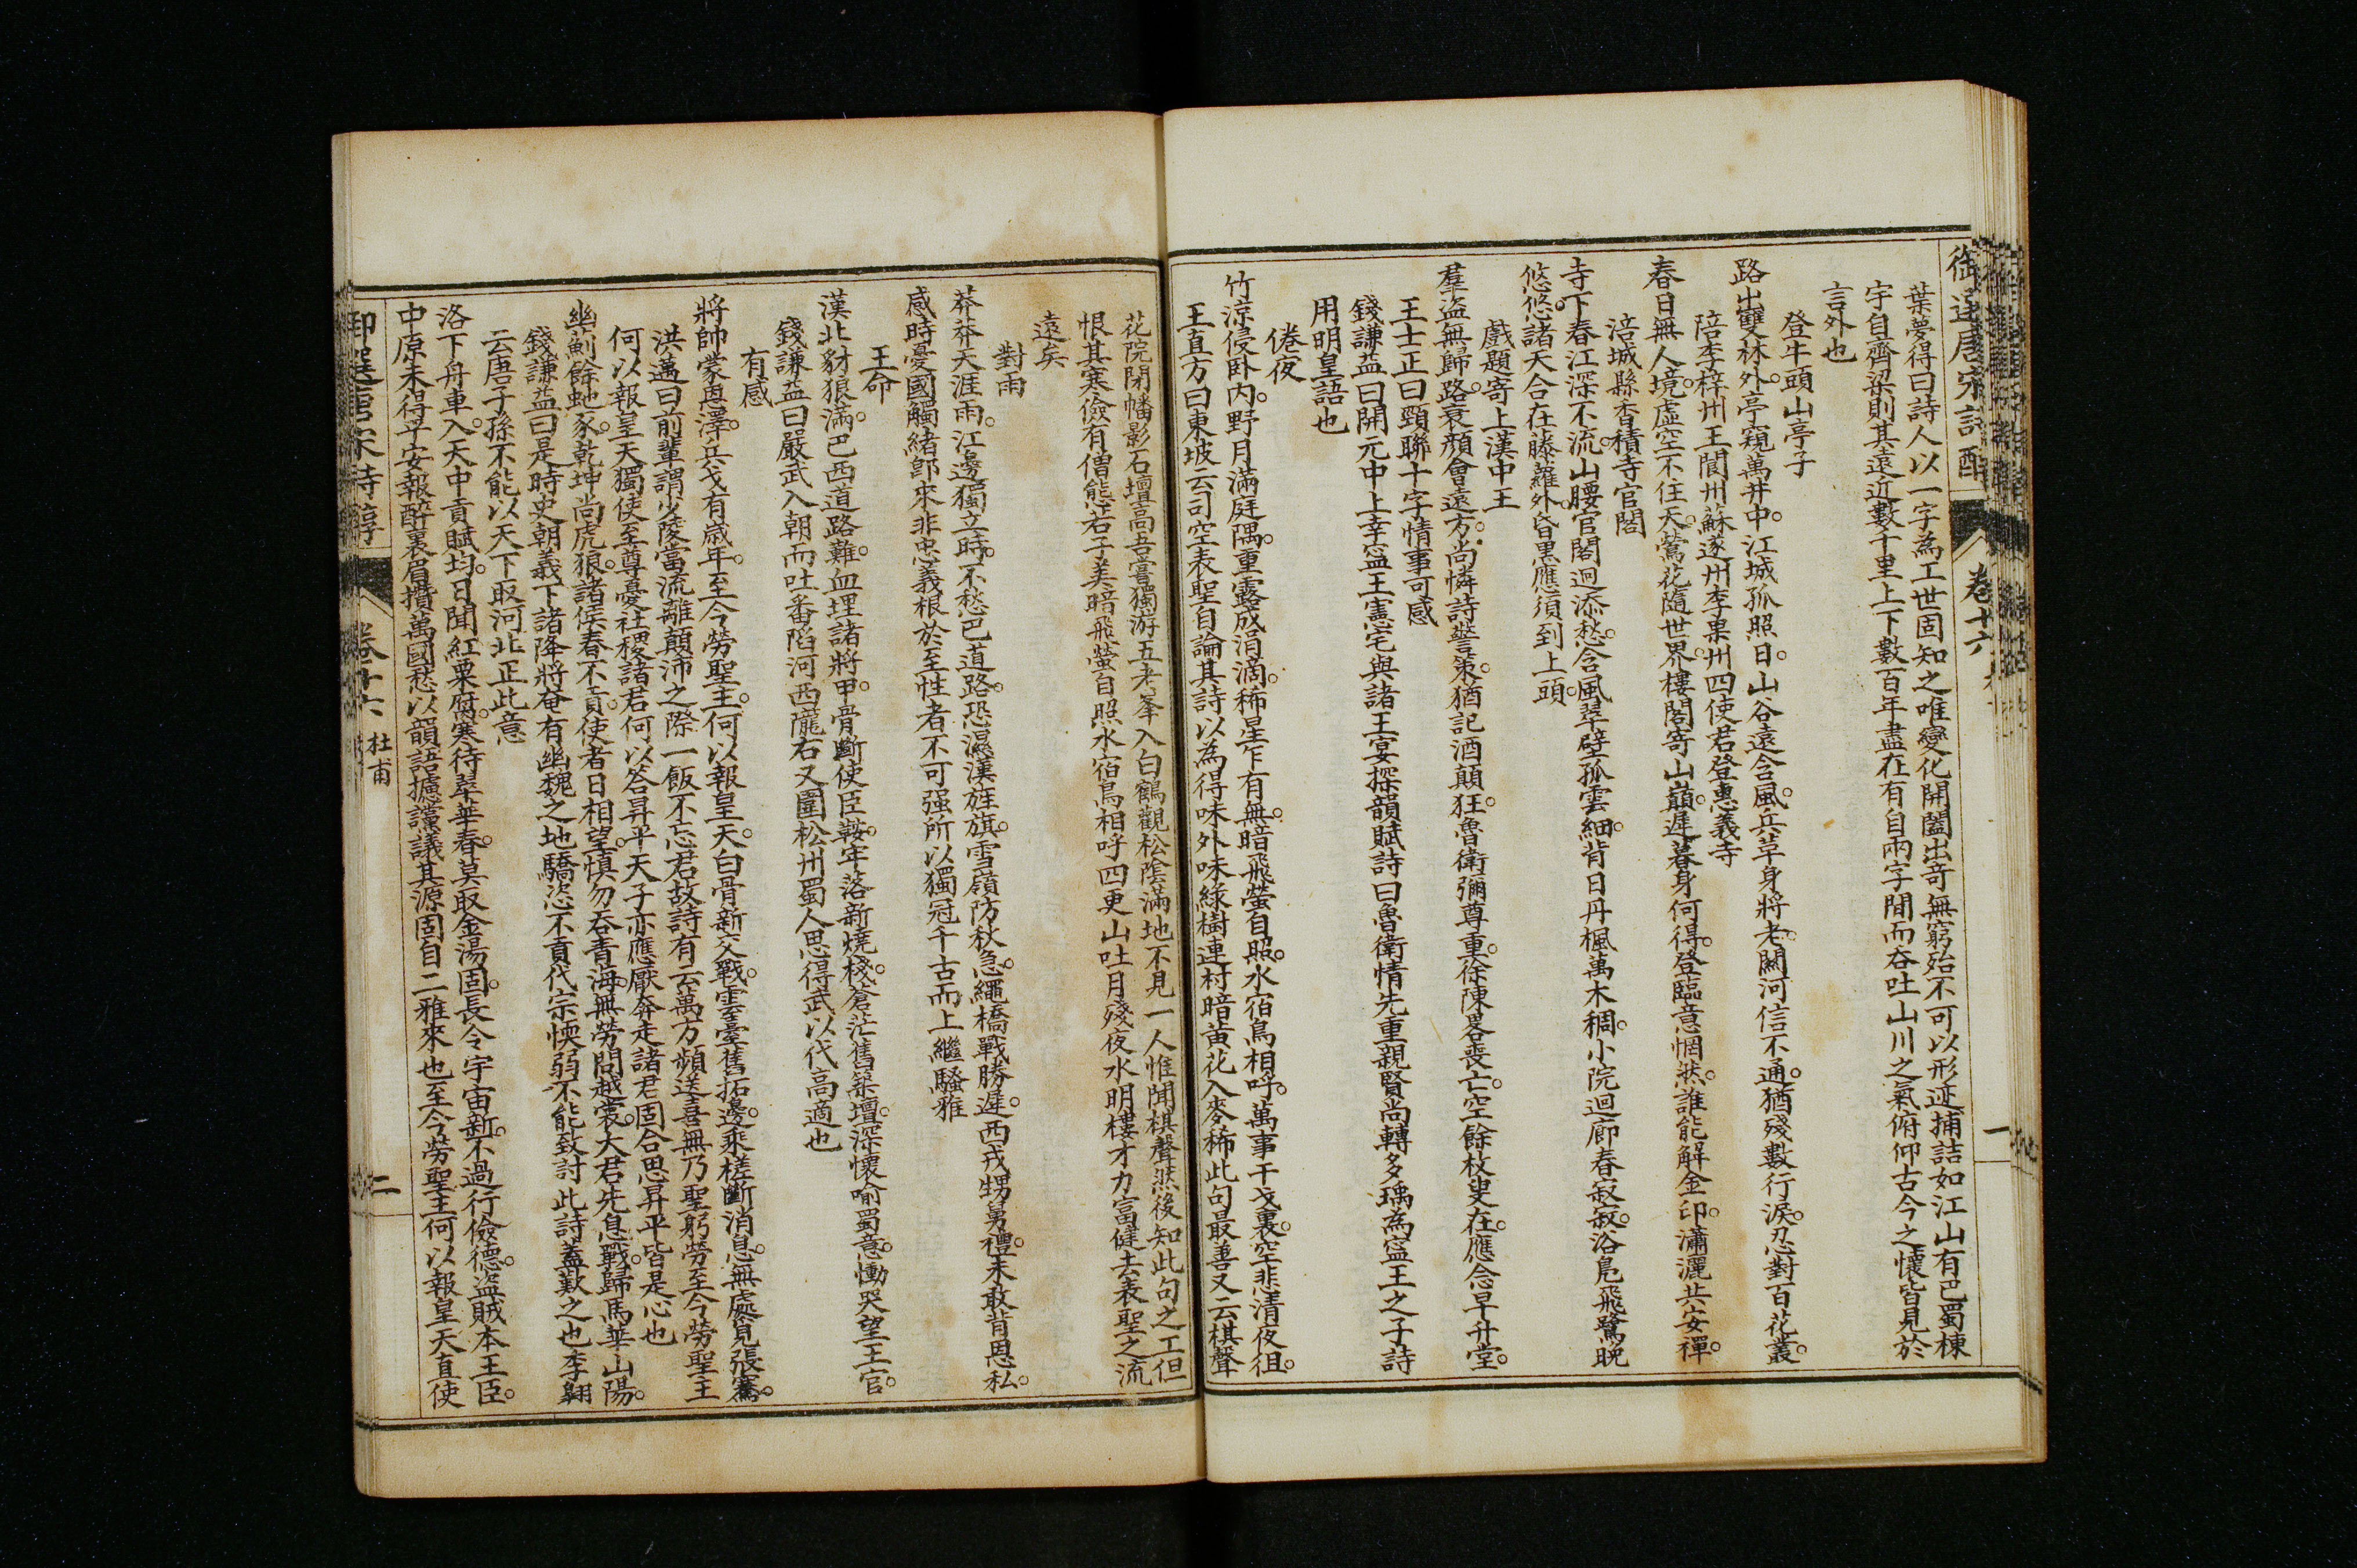 葉夢得曰詩人以一字為工世固知之唯變化開闔出竒無窮殆不可以形迹捕詰如江山有巴蜀棟
宇自齊梁則其遠近數千里上下數百年盡在有自兩字間而吞吐山川之氣俯仰古今之懷皆見於
言外也
登牛頭山亭子
路出雙林外。亭窺萬井中。江城孤照日。山谷遠含風。兵革身將老。關河信不通。猶殘數行淚。忍對百花叢。
陪李梓州王閬州蘇遂州李果州四使君登惠義寺
春日無人境。虛空不住天。鶯花隨世界。樓閣寄山巔。遲暮身何得。登臨意惘然。誰能解金印。瀟灑共安禪。
涪城縣香積寺官閣
寺下春江深不流。山腰官閣迥添愁。含風翠壁孤雲細。背日丹楓萬木稠。小院迴廊春寂寂。浴鳧飛鷺晚
悠悠。諸天合在藤蘿外。昏黑應須到上頭。
戲題寄上漢中王
羣盜無歸路。衰顏會遠方。尚憐詩警策。猶記酒顛狂。魯衛彌尊重。徐陳畧喪亡。空餘枚叟在。應念早升堂。
王士正曰頸聯十字情事可感
錢謙益曰開元中上幸寍王憲宅與諸王宴探韻賦詩曰魯衛情先重親賢尚轉多瑀為寍王之子詩
用明皇語也
倦夜
竹涼侵卧內。野月滿庭隅。重露成涓滴。稀星乍有無。暗飛螢自照。水宿鳥相呼。萬事干戈裏。空悲清夜徂。
王直方曰東坡云司空表聖自論其詩以為得味外味綠樹連村暗黃花入麥稀此句最善又云棋聲
御選唐宋詩醇
卷十六
一
花院閉幡影石壇高吾嘗獨游五老峯入白鶴觀松陰滿地不見一人惟聞棋聲然後知此句之工但
恨其寒儉有僧態若子美暗飛螢自照水宿鳥相呼四更山吐月殘夜水明樓才力富健去表聖之流
遠矣
對雨
莽莽天涯雨。江邊獨立時。不愁巴道路。恐濕漢旌旗。雪嶺防秋急。繩橋戰勝遲。西戎甥舅禮。未敢背恩私。
感時憂國觸緒卽來非忠義根於至性者不可强所以獨冠千古而上繼騷雅
王命
漢北豺狼滿。巴西道路難。血埋諸將甲。骨斷使臣鞍。牢落新燒棧。蒼茫舊築壇。深懷喻蜀意。慟哭望王官。
錢謙益曰嚴武入朝而吐番陷河西隴右又圍松州蜀人思得武以代高適也
有感
將帥蒙恩澤。兵戈有歲年。至今勞聖主。何以報皇天。白骨新交戰。雲臺舊拓邊。乘槎斷消息。無處覓張騫。
洪邁曰前輩謂少陵當流離顛沛之際一飯不忘君故詩有云萬方頻送喜無乃聖躬勞至今勞聖主
何以報皇天獨使至尊憂社稷諸君何以答昇平天子亦應厭奔走諸君固合思昇平皆是心也
幽薊餘蛇豕。乾坤尚虎狼。諸侯春不貢。使者日相望。慎勿吞青海。無勞問越裳。大君先息戰。歸馬華山陽。
錢謙益曰是時史朝義下諸降將奄有幽魏之地驕恣不貢代宗愞弱不能致討此詩蓋歎之也李翶
云唐子孫不能以天下取河北正此意
洛下舟車入。天中貢賦均。日聞紅粟腐。寒待翠華春。莫取金湯固。長令宇宙新。不過行儉德。盜賊本王臣。
中原未得平安報醉裏眉攢萬國愁以韻語攄讜議其源固自二雅來也至今勞聖主何以報皇天直使
御選唐宋詩醇
卷十六
杜甫
二